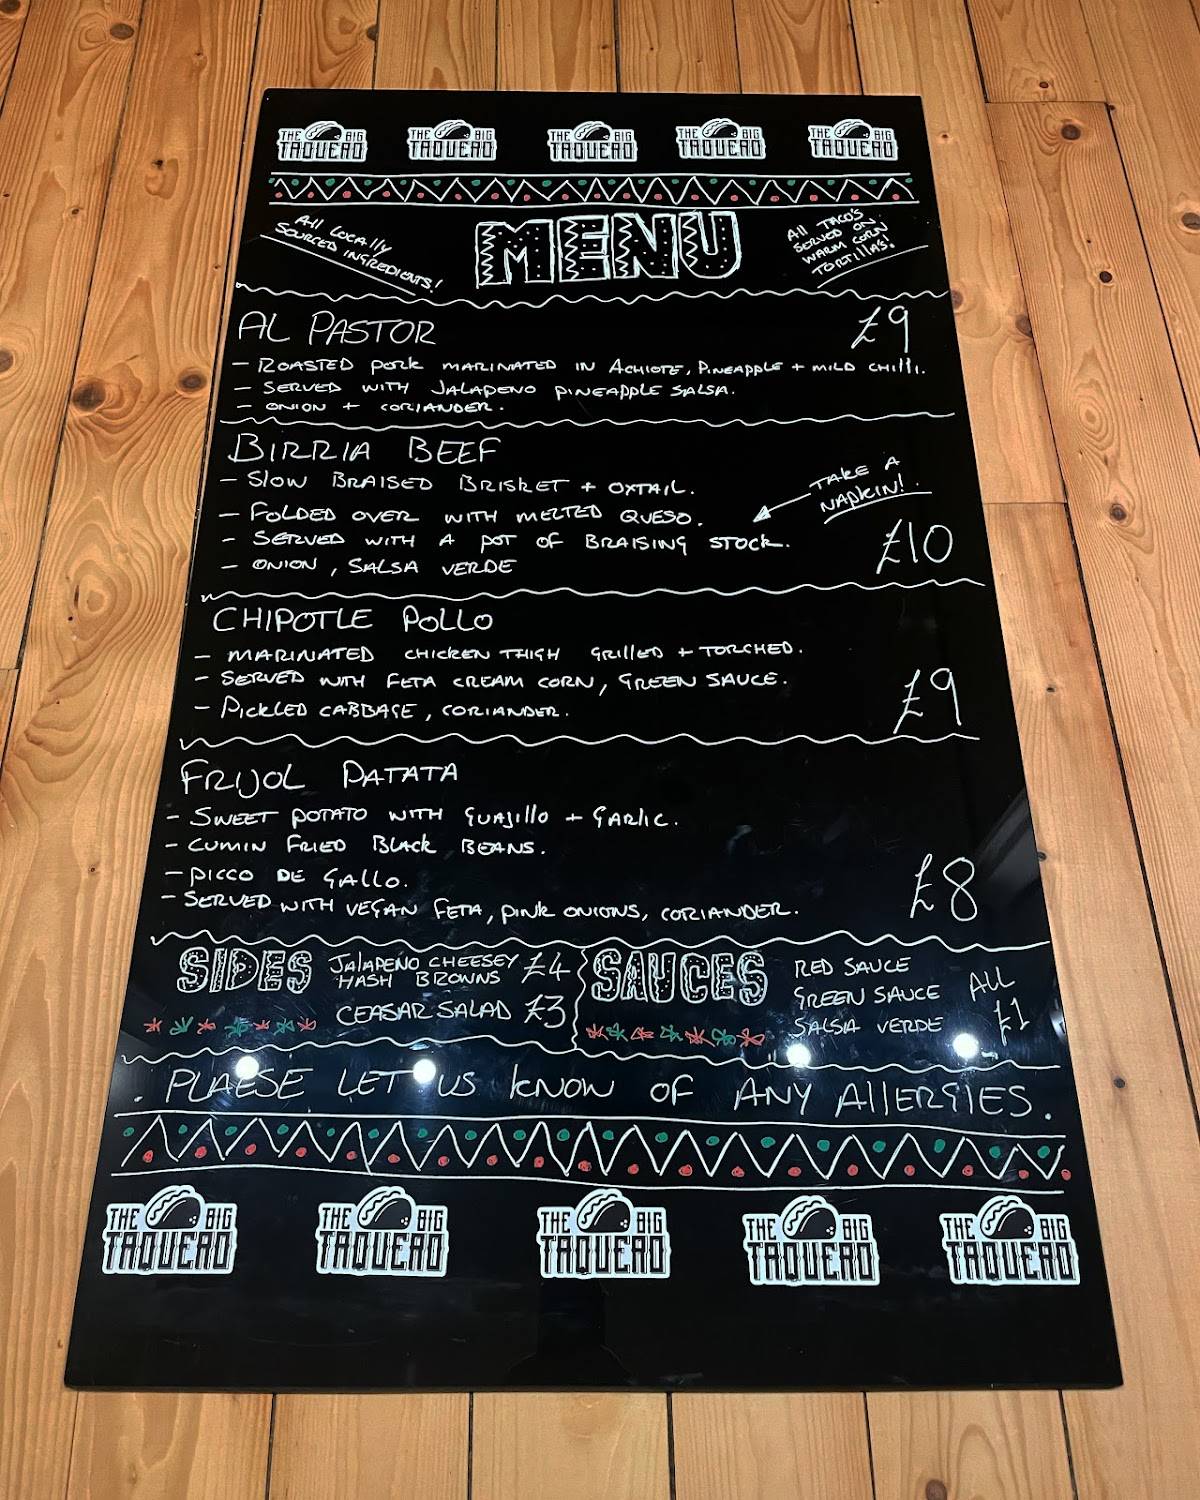 THE BIG TAQUERO
THE BIG TAQUERO
THE BIG TAQUERO
THE BIG TAQUERO
THE BIG TAQUERO
All Locally
SOURCED INGREDIENTS!
MENU
All TACO'S
SERVED ON
WARM CORN
TORTILLA'S!
AL PASTOR £9
- ROASTED PORK MARINATED IN ACHIOTE, PINEAPPLE + MILD CHILLI.
- SERVED WITH JALAPENO PINEAPPLE SALSA.
- ONION + CORIANDER.
BIRRIA BEEF
- SLOW BRAISED BRISKET + OXTAIL.
- FOLDED OVER WITH MELTED QUESO.
- SERVED WITH A POT OF BRAISING STOCK.
- ONION, SALSA VERDE
TAKE A
NAPKIN!
£10
CHIPOTLE POLLO
- MARINATED CHICKEN THIGH GRILLED + TORCHED.
- SERVED WITH FETA CREAM CORN, GREEN SAUCE.
- PICKLED CABBAGE, CORIANDER.
£9
FRIJOL PATATA
- SWEET POTATO WITH GUAJILLO + GARLIC.
- CUMIN FRIED BLACK BEANS.
- PICCO DE GALLO.
- SERVED WITH VEGAN FETA, PINK ONIONS, CORIANDER.
£8
SIDES
JALAPEÑO CHEESEY
HASH BROWNS £4
CEASAR SALAD £3
SAUCES
RED SAUCE
GREEN SAUCE
SALSA VERDE
ALL
£1
. PLAESE LET US KNOW OF ANY ALLERGIES.
THE BIG TAQUERO
THE BIG TAQUERO
THE BIG TAQUERO
THE BIG TAQUERO
THE BIG TAQUERO